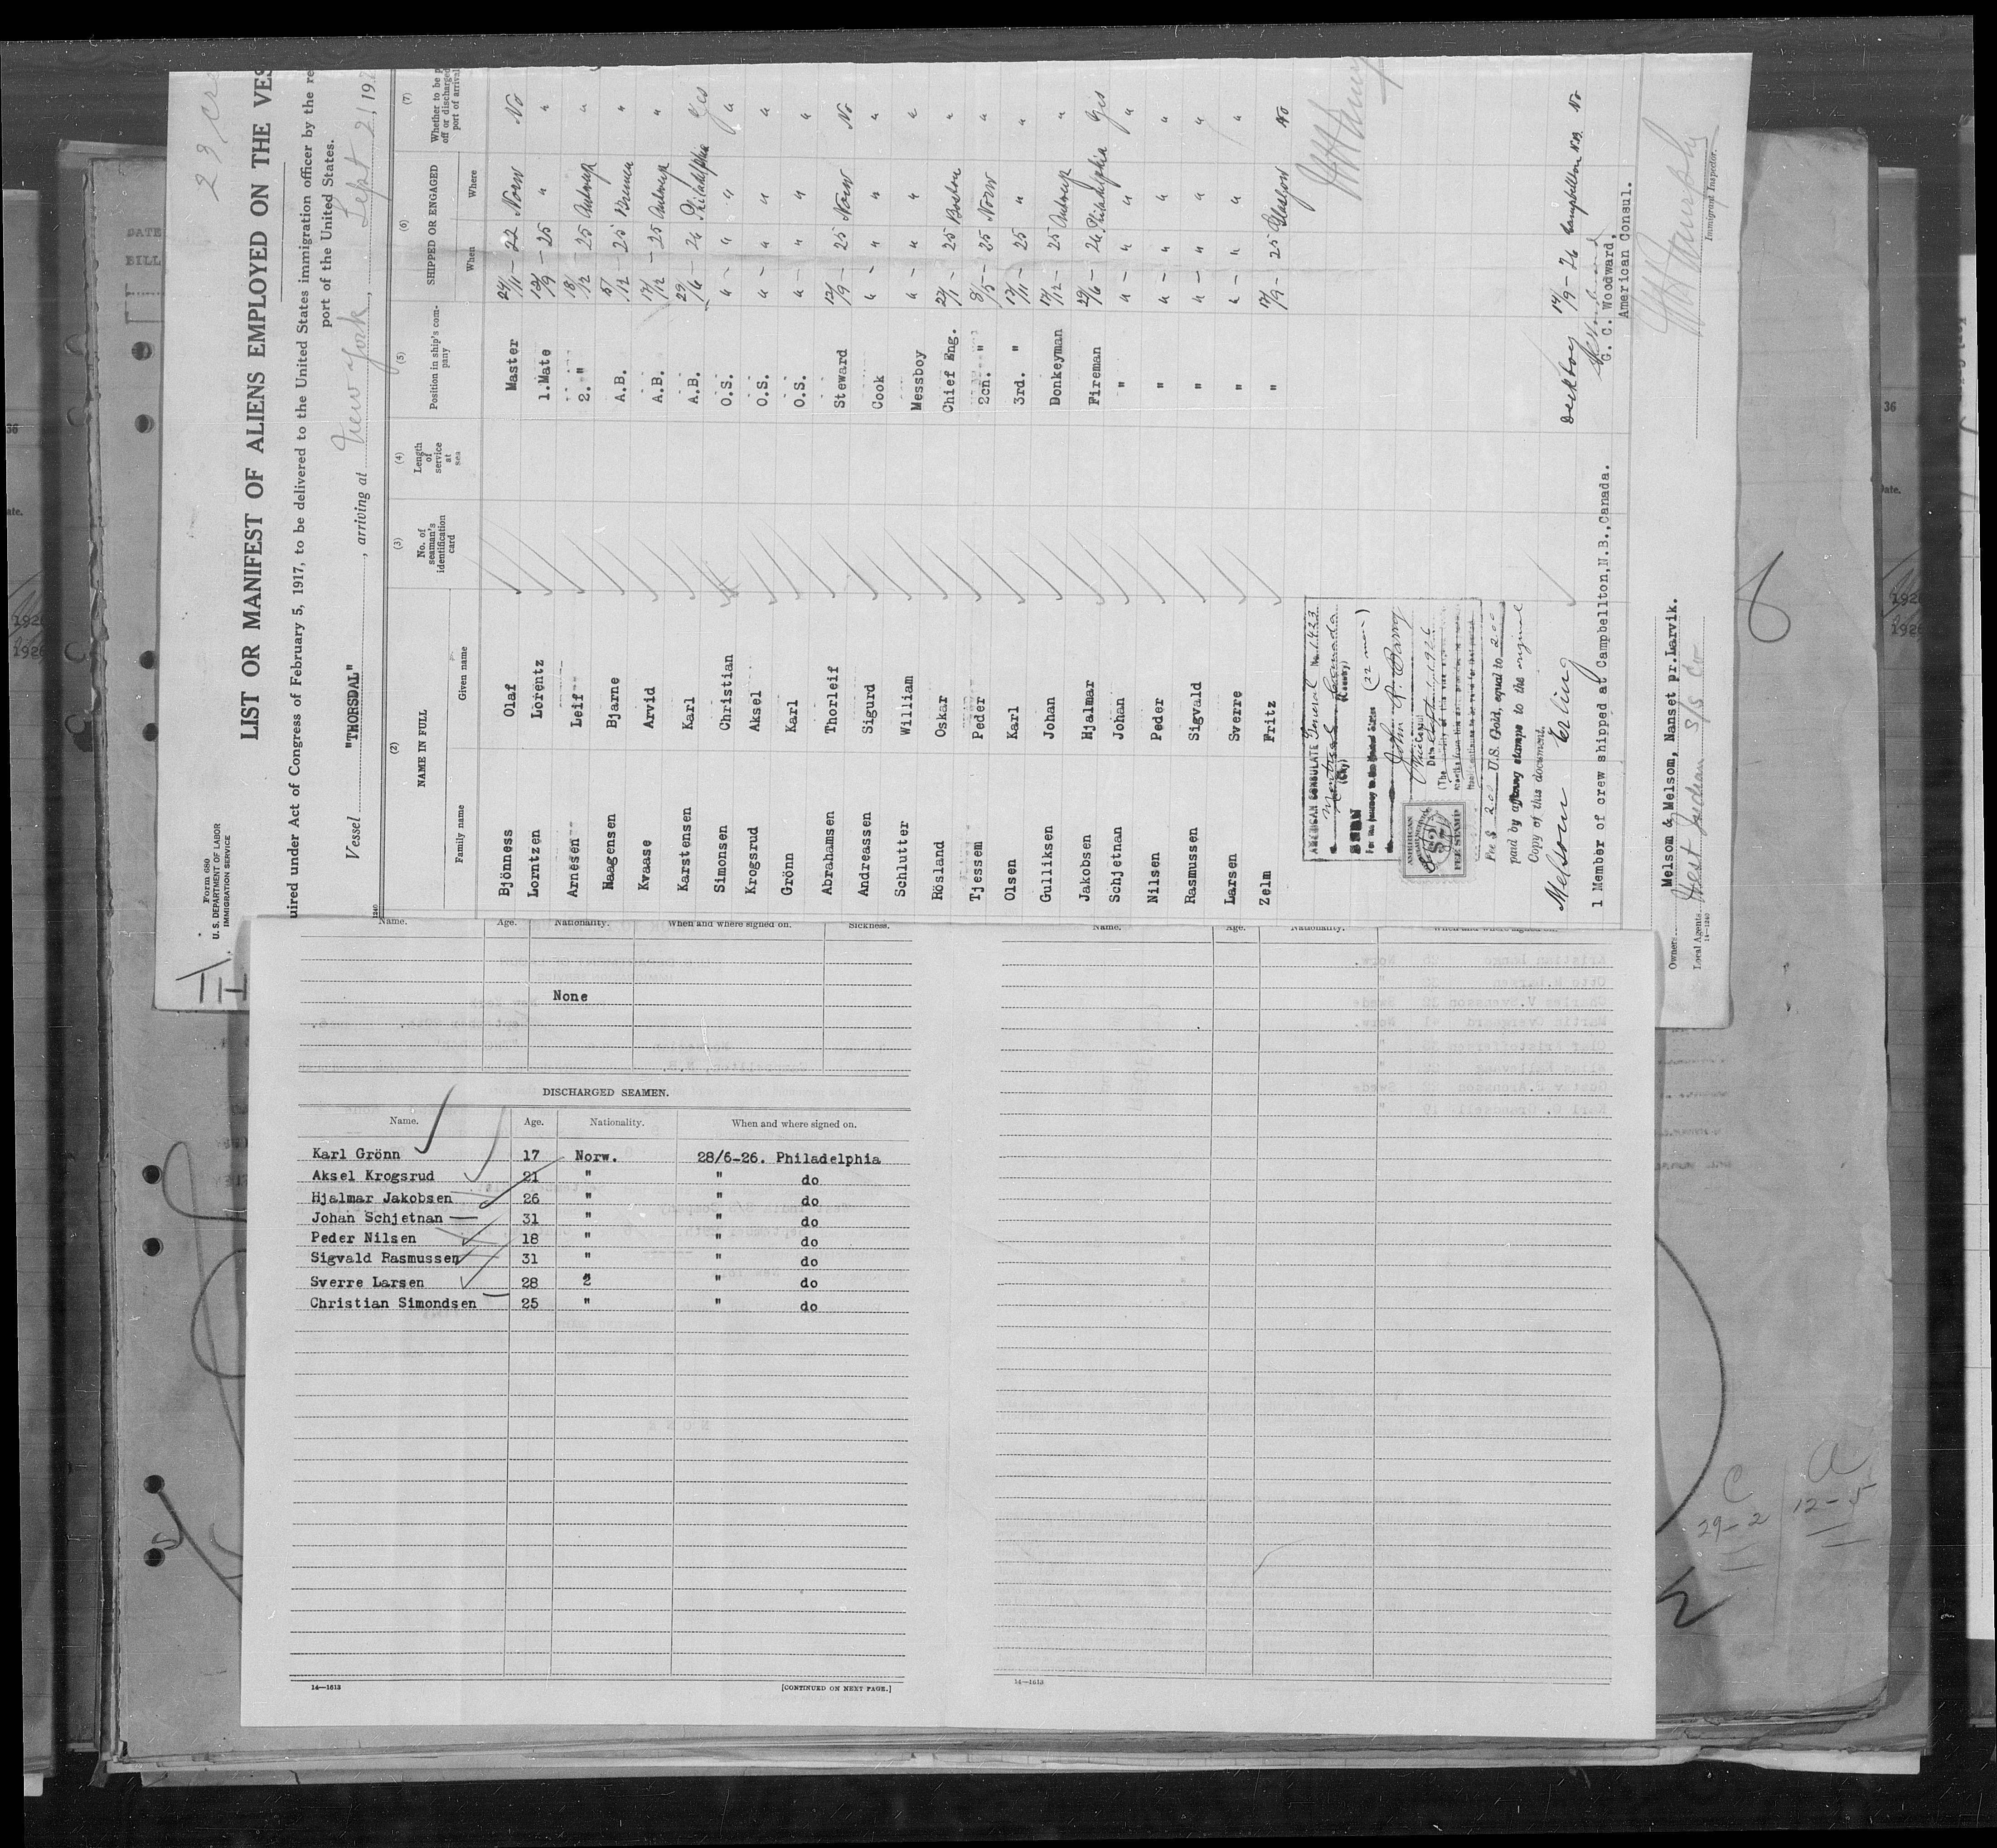 23 Cre
Form 680
U. S. DEPARTMENT OF LABOR
IMMIGRATION SERVICE
LIST OR MANIFEST OF ALIENS EMPLOYED ON THE VES
uired under Act of Congress of February 5, 1917, to be delivered to the United States immigration officer by the re
port of the United States.
Vessel "THORSDAL", arriving at New York, Sept 21, 192
(2) (3) (4) (5) (6) (7)
NAME IN FULL No. of seaman's identification card Length of service at sea Position in ship's company SHIPPED OR ENGAGED Whether to be p off or discharged port of arrival
Family name Given name When Where
Bjönness Olaf Master 24/11 - 22 Norw No
Lorntzen Lorentz 1.Mate 12/9 - 25 " "
Arnesen Leif 2. " 18/12 - 25 Antwerp "
Haagensen Bjarne A.B. 5/12 - 25 Bremen "
Kvaase Arvid A.B. 17/12 - 25 Antwerp "
Karstensen Karl A.B. 29/6 - 26 Philadelphia Yes
Simonsen Christian O.S. " - " " "
Krogsrud Aksel O.S. " - " " "
Grönn Karl O.S. " - " " "
Abrahamsen Thorleif Steward 12/9 - 25 Norw No
Andreassen Sigurd Cook " - " " "
Schlutter William Messboy " - " " "
Rösland Oskar Chief Eng. 22/1 - 25 Boston "
Tjessem Peder 2cn. " 8/5 - 25 Norw "
Olsen Karl 3rd. " 12/11 - 25 " "
Gulliksen Johan Donkeyman 17/12 - 25 Antwerp "
Jakobsen Hjalmar Fireman 29/6 - 26 Philadelphia Yes
Schjetnan Johan " " - " " "
Nilsen Peder " " - " " "
Rasmussen Sigvald " " - " " "
Larsen Sverre " " - " " "
Zelm Fritz " 17/9 - 25 Glasgow No
AMERICAN CONSULATE General No. 1423
Montreal Canada
(City) (Country)
SEEN
For the journey to the United States (22 men)
John R. Barry
AMERICAN
FEE STAMP
Fee $ 2.00 U.S. Gold, equal to 2.00
paid by affixing stamps to the original
Copy of this document.
Melsom Erling deckboy 14/9 - 26 Campbellton N.B. No
1 Member of crew shipped at Campbellton,N.B.,Canada.
G. C. Woodward,
American Consul.
Owners Melsom & Melsom, Nanset pr.Larvik.
Local Agents West Indian S/S Co
Immigrant Inspector.
14-1240
TH
Name. Age. Nationality. When and where signed on. Sickness.
None
DISCHARGED SEAMEN.
Name. Age. Nationality. When and where signed on.
Karl Grönn 17 Norw. 28/6-26. Philadelphia
Aksel Krogsrud 21 " " do
Hjalmar Jakobsen 26 " " do
Johan Schjetnan 31 " " do
Peder Nilsen 18 " " do
Sigvald Rasmussen 31 " " do
Sverre Larsen 28 2 " do
Christian Simondsen 25 " " do
14—1613 [CONTINUED ON NEXT PAGE.]
Name. Age. Nationality. When and where signed on.
14—1613
C
29-2
a
12-5
DATE
BILL
36